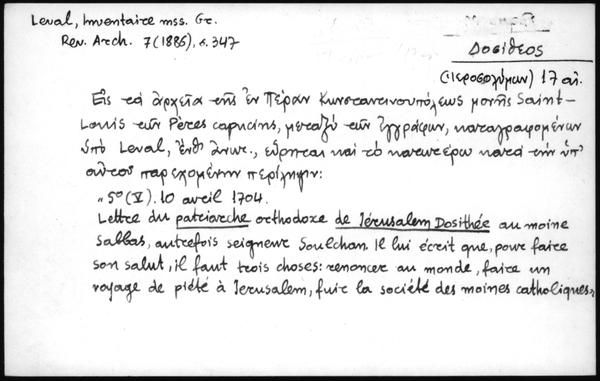 Leval, Inventaire mss. Gr.
Rev. Arch. 7 (1886), σ. 347
Δοσίθεος
(Ἱεροσολύμων) 17 αἰ.
Εἰς τὰ ἀρχεῖα τῆς ἐν Πέραν Κωνσταντινουπόλεως μονῆς Saint-
Louis τῶν Pères capucins, μεταξὺ τῶν ἐγγράφων, καταγραφομένων
ὑπὸ Leval, ἔνθ' ἄνωτ., εὕρηται καὶ τὸ κατωτέρω κατὰ τὴν ὑπ'
αὐτοῦ παρεχομένην περίληψιν:
„ 5º (V). 10 avril 1704.
Lettre du patriarche orthodoxe de Jérusalem Dosithée au moine
Sabbas, autrefois seigneur Soulchan. Il lui écrit que, pour faire
son salut, il faut trois choses: renoncer au monde, faire un
voyage de piété à Jerusalem, fuir la société des moines catholiques„